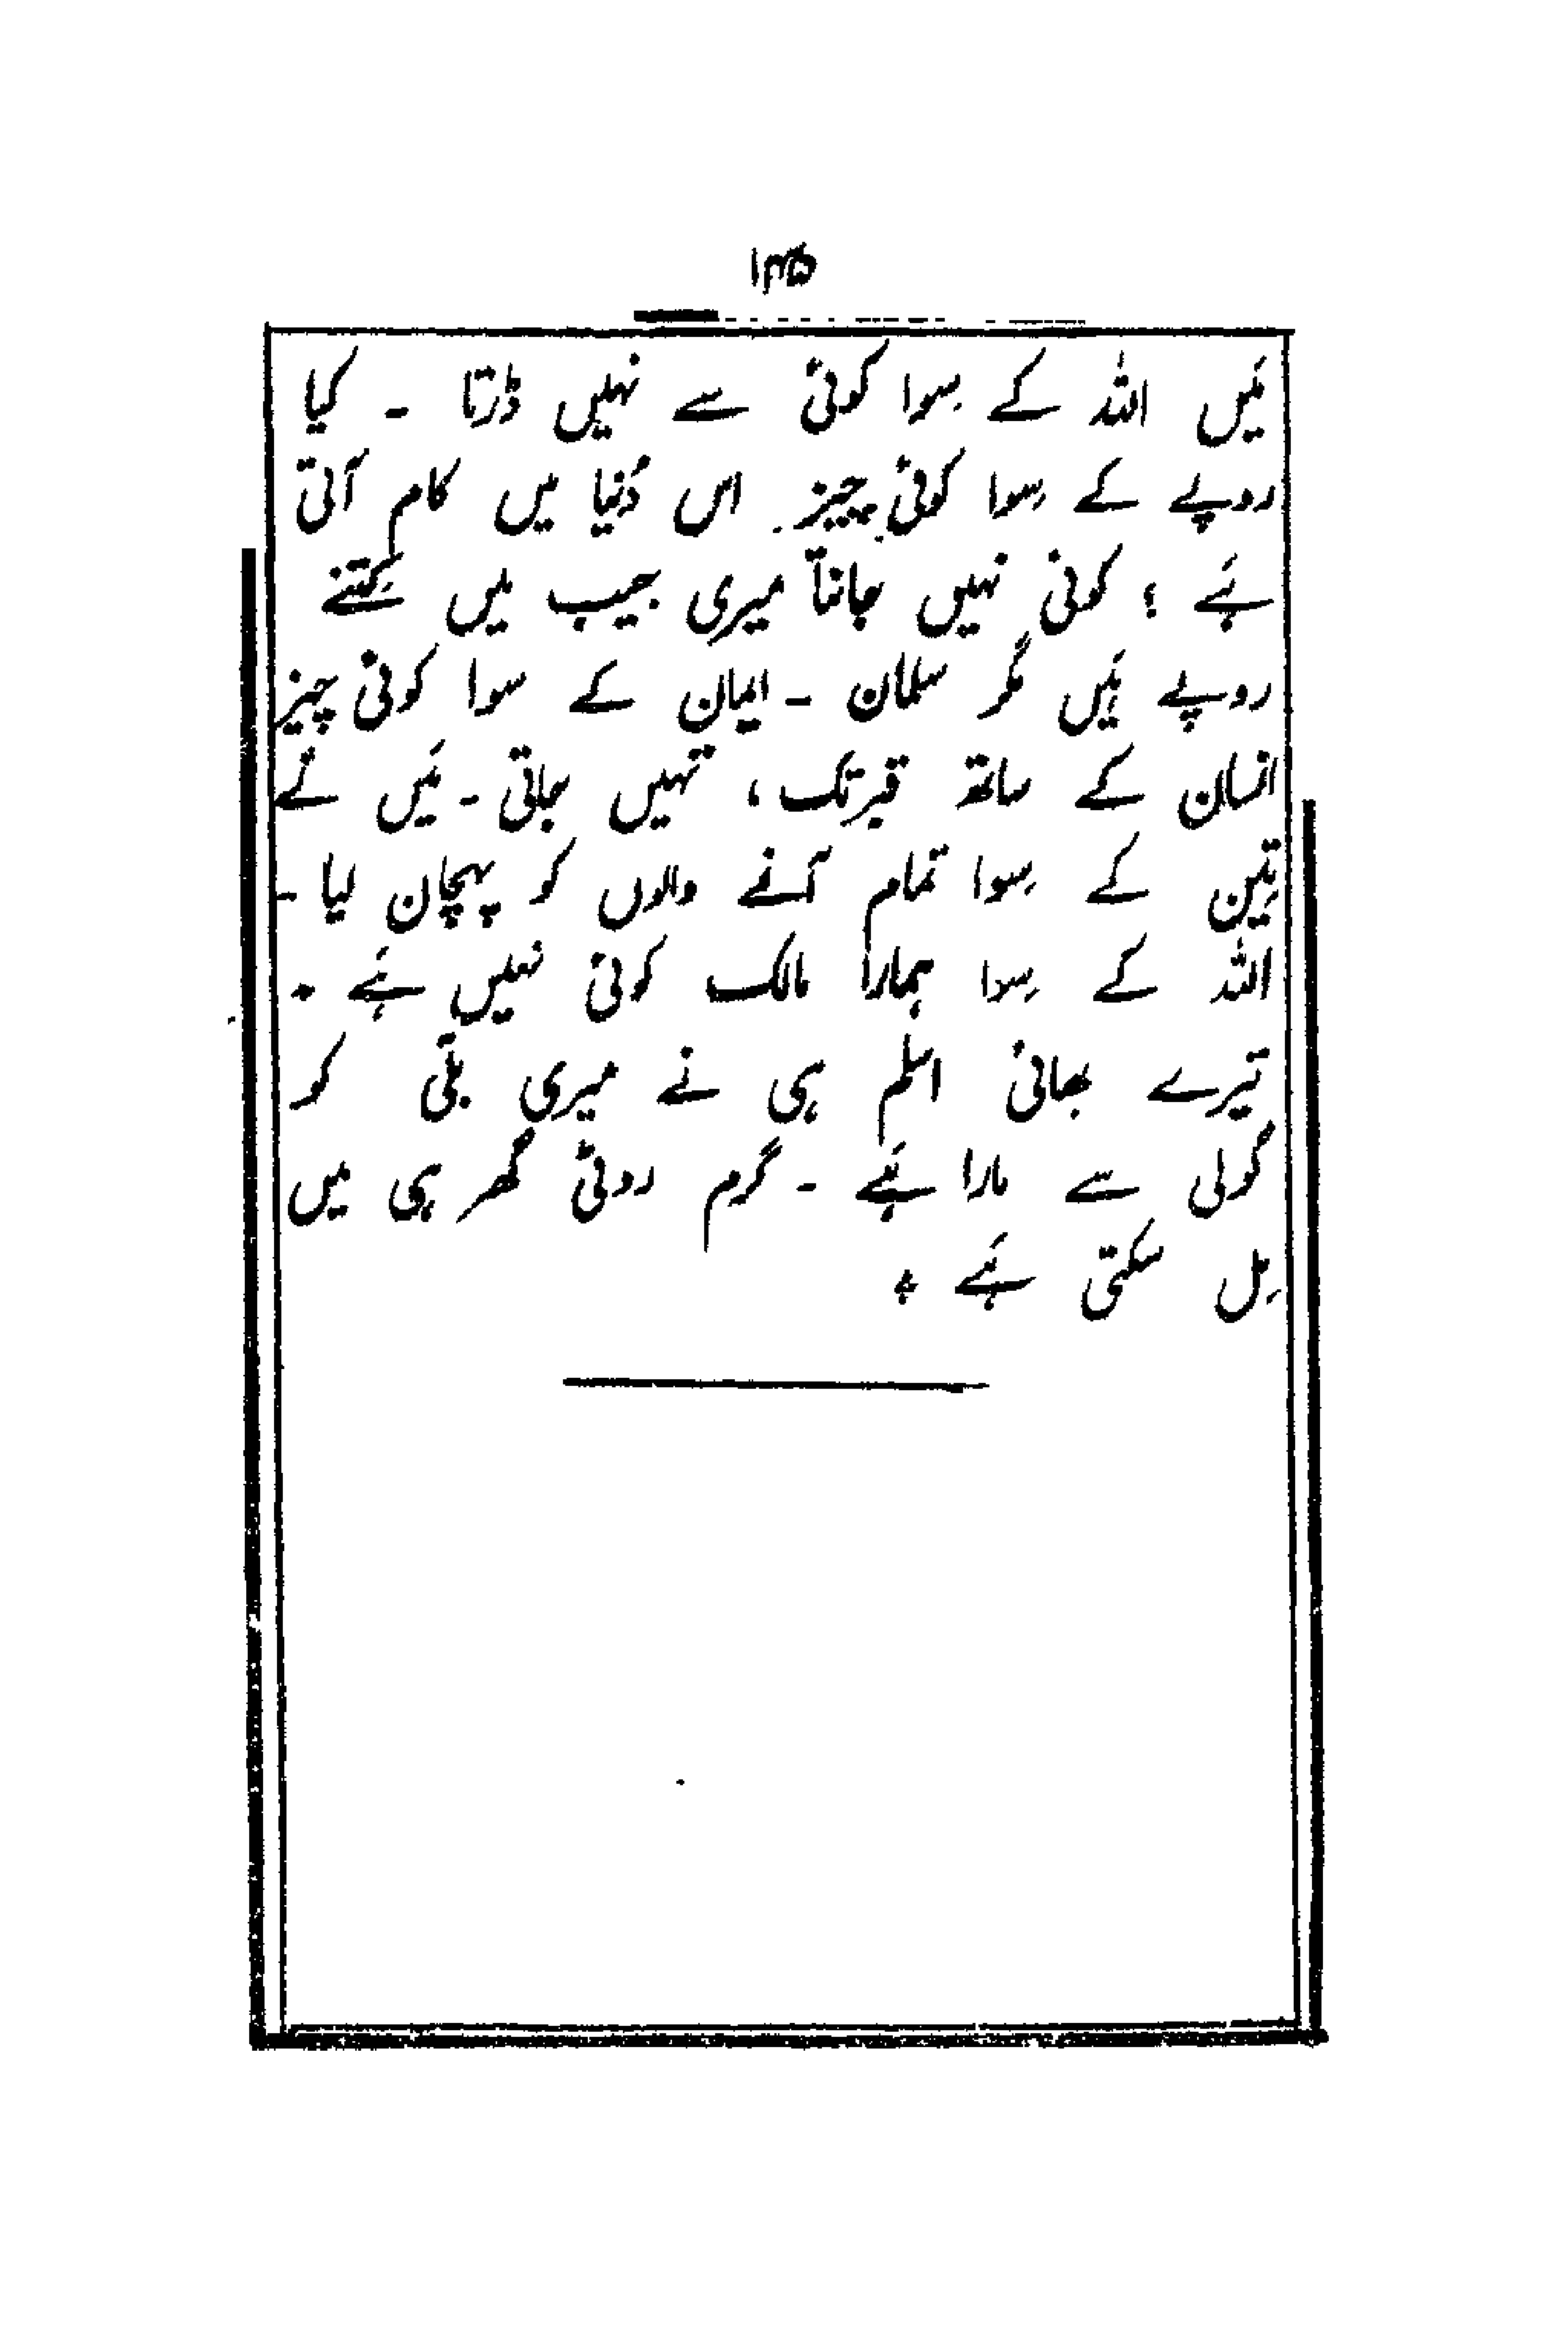 ۱۳۵
مَیں اللہ کے سِوا کوئی سے نہیں ڈرتا ۔ کیا
روپے کے سِوا کوئی چیز اس دُنیا میں کام آتی
ہَے ؟ کوئی نہیں جانتا میری جیب میں کِتنے
روپے ہَیں مگر سلمان ۔ ایمان کے سوا کوئی چیز
انسان کے ساتھ قبر تک ، نہیں جاتی ۔ مَیں نَے
تِین کے سِوا تمام آنے والوں کو پہچان لیا ۔
اللہ کے سِوا ہمارا مالک کوئی نہیں ہَے ۔
تیرے بھائی اسلم ہی نے میری بلّی کو
گولی سے مارا ہَے ۔ گرم روٹی گھر ہی میں
مِل سکتی ہَے ؞